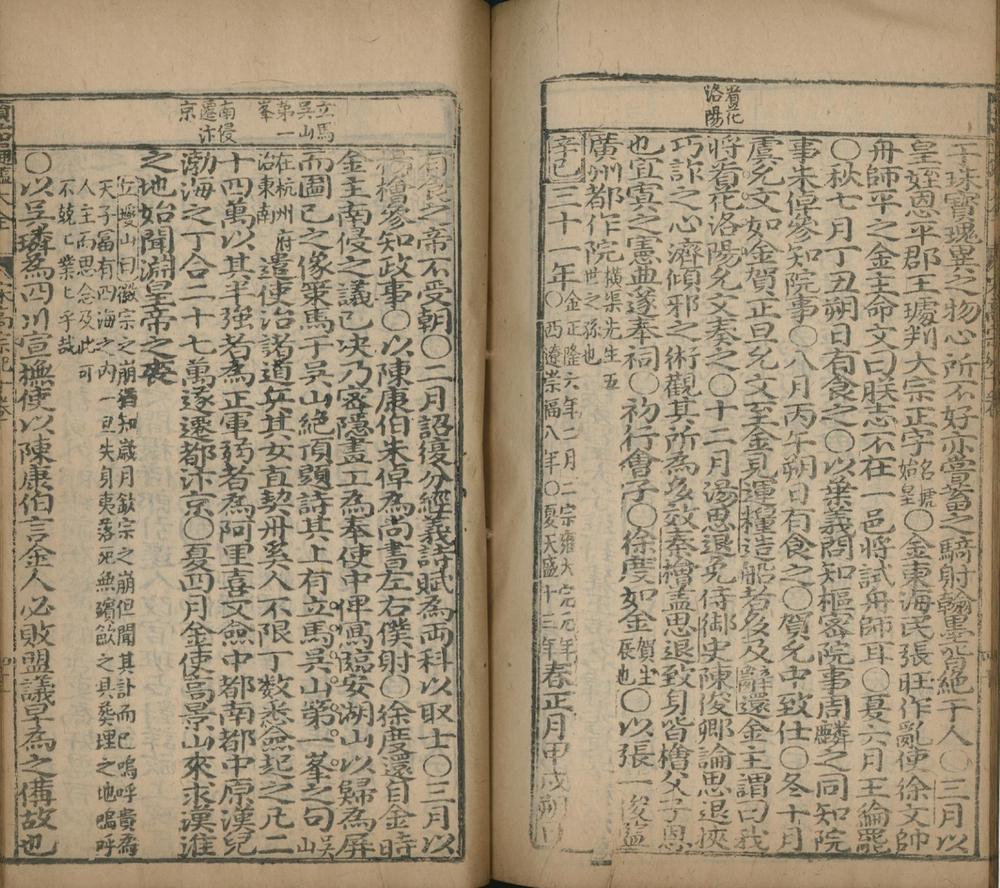 看花
洛陽
工珠寶瑰異之物心所不好亦嘗畜之騎射翰墨皆絕于人〇三月以
皇姪恩平郡王璩判大宗正字名琥始皇〇金東海民張旺作亂使徐文帥
舟師平之金主命文曰朕志不在一邑將試舟師耳〇夏六月王綸罷
〇秋七月丁丑朔日有食之〇以葉義問知樞密院事周麟之同知院
事朱倬參知院事〇八月丙午朔日有食之〇賀允中致仕〇冬十月
虞允文如金賀正旦允文至金見運糧造船者多及辭還金主謂曰我
將看花洛陽允文奏之〇十二月湯思退免侍御史陳俊卿論思退挾
巧詐之心濟傾邪之術觀其所為多效秦檜蓋思退致身皆檜父子恩
也宜寘之憲典遂奉祠〇初行會子〇徐度如金賀生辰也〇以張一俊蓋
廣州都作院橫渠先生五世之孫也
辛巳三十一年〇金正隆六年二月二宗雍大定元年〇西遼崇福八年〇夏天盛十三年春正月甲戌朔日
立馬
吳山
第一
峯
南侵
遷汴
京
有食之帝不受朝〇二月詔復分經義詩賦為兩科以取士〇三月以
楊椿參知政事〇以陳康伯朱倬為尚書左右僕射〇徐度還自金時
金主南侵之議已決乃密隱畫工為奉使中俾寫臨安湖山以歸為屏
而圖已之像策馬于吳山絕頂題詩其上有立馬吳山第一峯之句吳山
在杭州府治東南遣使治諸道兵其女直契丹奚人不限丁數悉僉起之凡二
十四萬以其半強者為正軍弱者為阿里喜又僉中都南都中原漢兒
渤海之丁合二十七萬遂遷都汴京〇夏四月金使高景山來求漢淮
之地始聞淵聖皇帝之喪
丘瓊山曰徽宗之崩猶知歲月欽宗之崩但聞其訃而已嗚呼貴為
天子富有四海之內一旦失身夷落死無殯歛之具葬埋之地嗚呼
人主而思念及此可
不兢乀業乀乎哉
〇以吳璘為四川宣撫使以陳康伯言金人必敗盟議早為之備故也